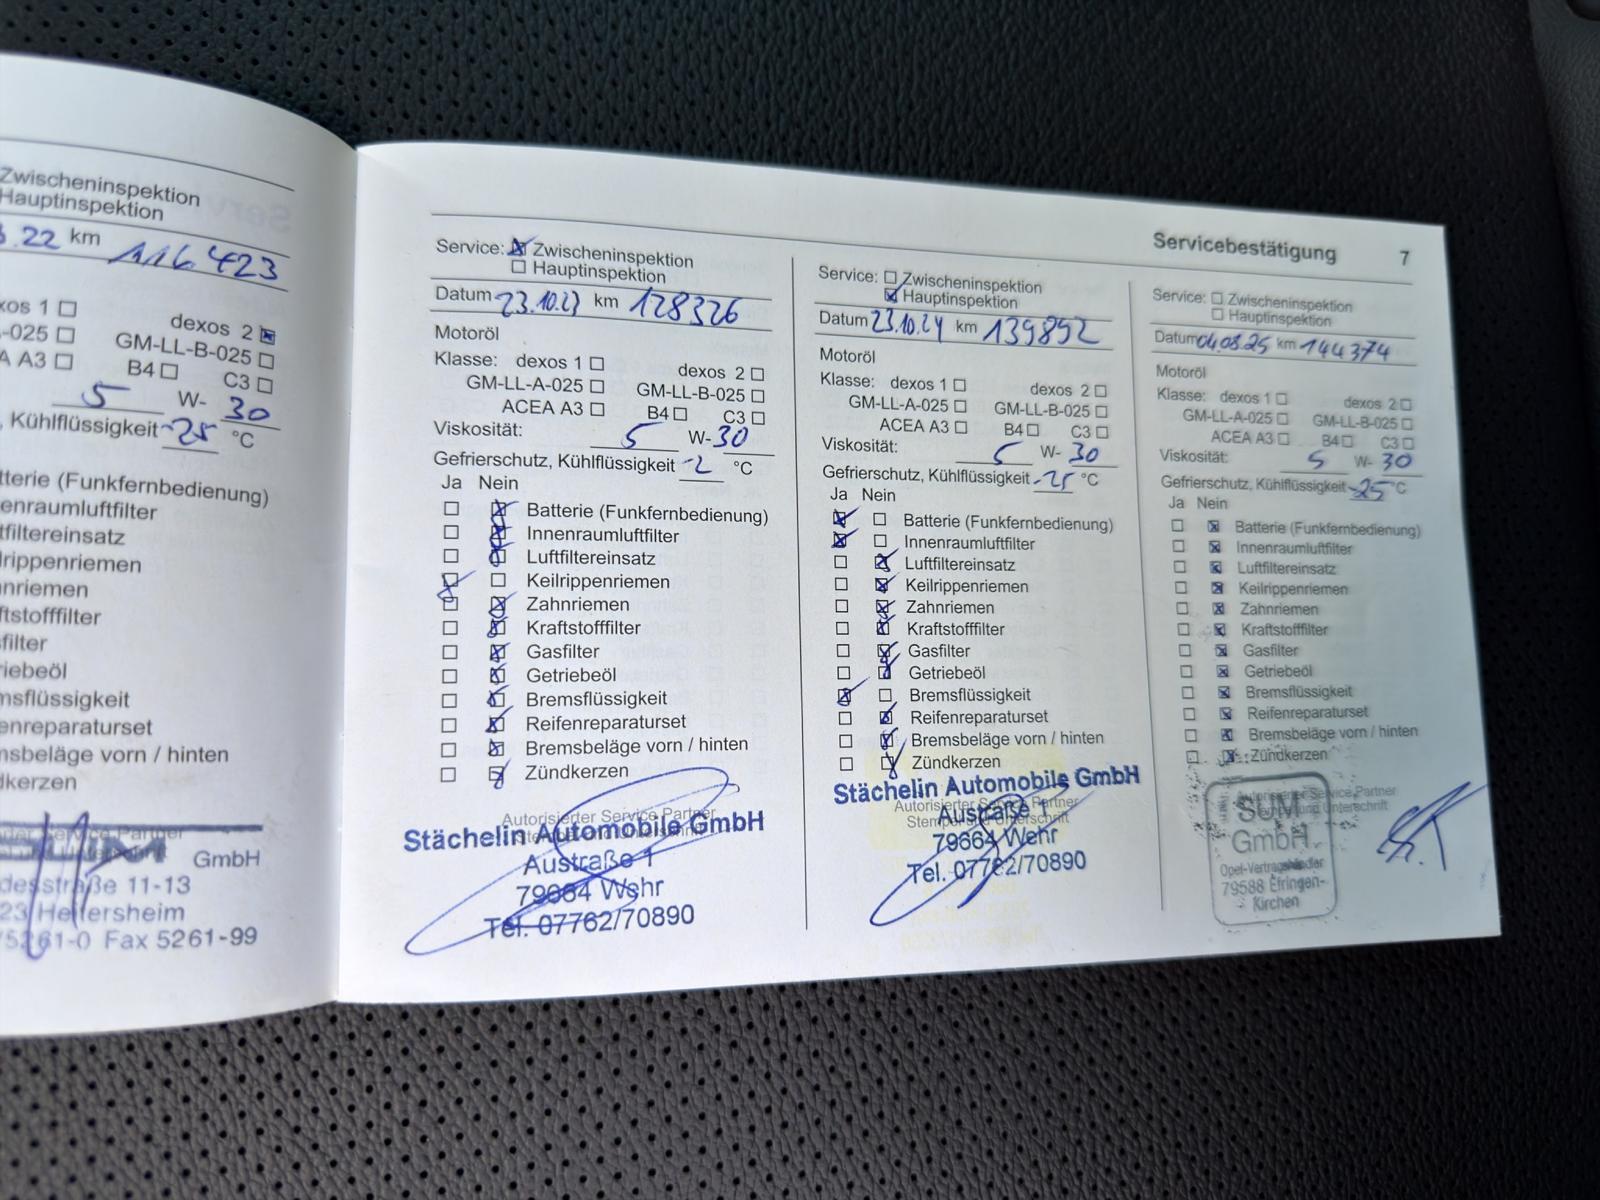 Zwischeninspektion
Hauptinspektion
.22 km 116.423
dexos 2 ☒
GM-LL-B-025 ☐
A3 ☐ B4 ☐ C3 ☐
5 W- 30
, Kühlflüssigkeit -25 °C
tterie (Funkfernbedienung)
enraumluftfilter
tfiltereinsatz
lrippenriemen
nriemen
ftstofffilter
filter
riebeöl
msflüssigkeit
enreparaturset
msbeläge vorn / hinten
dkerzen
GmbH
desstraße 11-13
23 Heitersheim
5261-0 Fax 5261-99
Servicebestätigung 7
Service: ☒ Zwischeninspektion
☐ Hauptinspektion
Datum 23.10.23 km 128326
Motoröl
Klasse: dexos 1 ☐ dexos 2 ☐
GM-LL-A-025 ☐ GM-LL-B-025 ☐
ACEA A3 ☐ B4 ☐ C3 ☐
Viskosität: 5 W-30
Gefrierschutz, Kühlflüssigkeit -2 °C
Ja Nein
☐ ☒ Batterie (Funkfernbedienung)
☐ ☒ Innenraumluftfilter
☐ ☒ Luftfiltereinsatz
☒ ☐ Keilrippenriemen
☐ ☒ Zahnriemen
☐ ☒ Kraftstofffilter
☐ ☒ Gasfilter
☐ ☒ Getriebeöl
☐ ☒ Bremsflüssigkeit
☐ ☒ Reifenreparaturset
☐ ☒ Bremsbeläge vorn / hinten
☐ ☒ Zündkerzen
Autorisierter Service Partner
Stächelin Automobile GmbH
Austraße 1
79664 Wehr
Tel. 07762/70890
Service: ☐ Zwischeninspektion
☒ Hauptinspektion
Datum 23.10.24 km 139892
Motoröl
Klasse: dexos 1 ☐ dexos 2 ☐
GM-LL-A-025 ☐ GM-LL-B-025 ☐
ACEA A3 ☐ B4 ☐ C3 ☐
Viskosität: 5 W- 30
Gefrierschutz, Kühlflüssigkeit -25 °C
Ja Nein
☒ ☐ Batterie (Funkfernbedienung)
☒ ☐ Innenraumluftfilter
☐ ☒ Luftfiltereinsatz
☐ ☒ Keilrippenriemen
☐ ☒ Zahnriemen
☐ ☒ Kraftstofffilter
☐ ☒ Gasfilter
☐ ☒ Getriebeöl
☒ ☐ Bremsflüssigkeit
☐ ☒ Reifenreparaturset
☐ ☒ Bremsbeläge vorn / hinten
☐ ☒ Zündkerzen
Stächelin Automobile GmbH
Autorisierter Service Partner
Austraße 1
Stempel und Unterschrift
79664 Wehr
Tel. 07762/70890
Service: ☐ Zwischeninspektion
☐ Hauptinspektion
Datum 04.08.25 km 144374
Motoröl
Klasse: dexos 1 ☐ dexos 2 ☐
GM-LL-A-025 ☐ GM-LL-B-025 ☐
ACEA A3 ☐ B4 ☐ C3 ☐
Viskosität: 5 W- 30
Gefrierschutz, Kühlflüssigkeit -25 °C
Ja Nein
☐ ☒ Batterie (Funkfernbedienung)
☐ ☒ Innenraumluftfilter
☐ ☒ Luftfiltereinsatz
☐ ☒ Keilrippenriemen
☐ ☒ Zahnriemen
☐ ☒ Kraftstofffilter
☐ ☒ Gasfilter
☐ ☒ Getriebeöl
☐ ☒ Bremsflüssigkeit
☐ ☒ Reifenreparaturset
☐ ☒ Bremsbeläge vorn / hinten
☐ ☒ Zündkerzen
Autorisierter Service Partner
Unterschrift
SUM
GmbH
Opel-Vertragshändler
79588 Efringen-
Kirchen